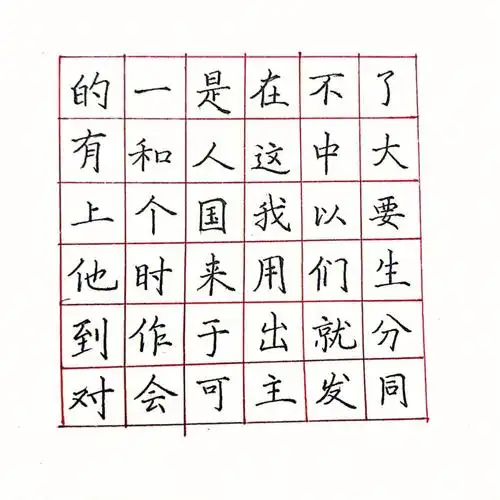 的一是在不了
有和人这中大
上个国我以要
他时来用们生
到作于出就分
对会可主发同